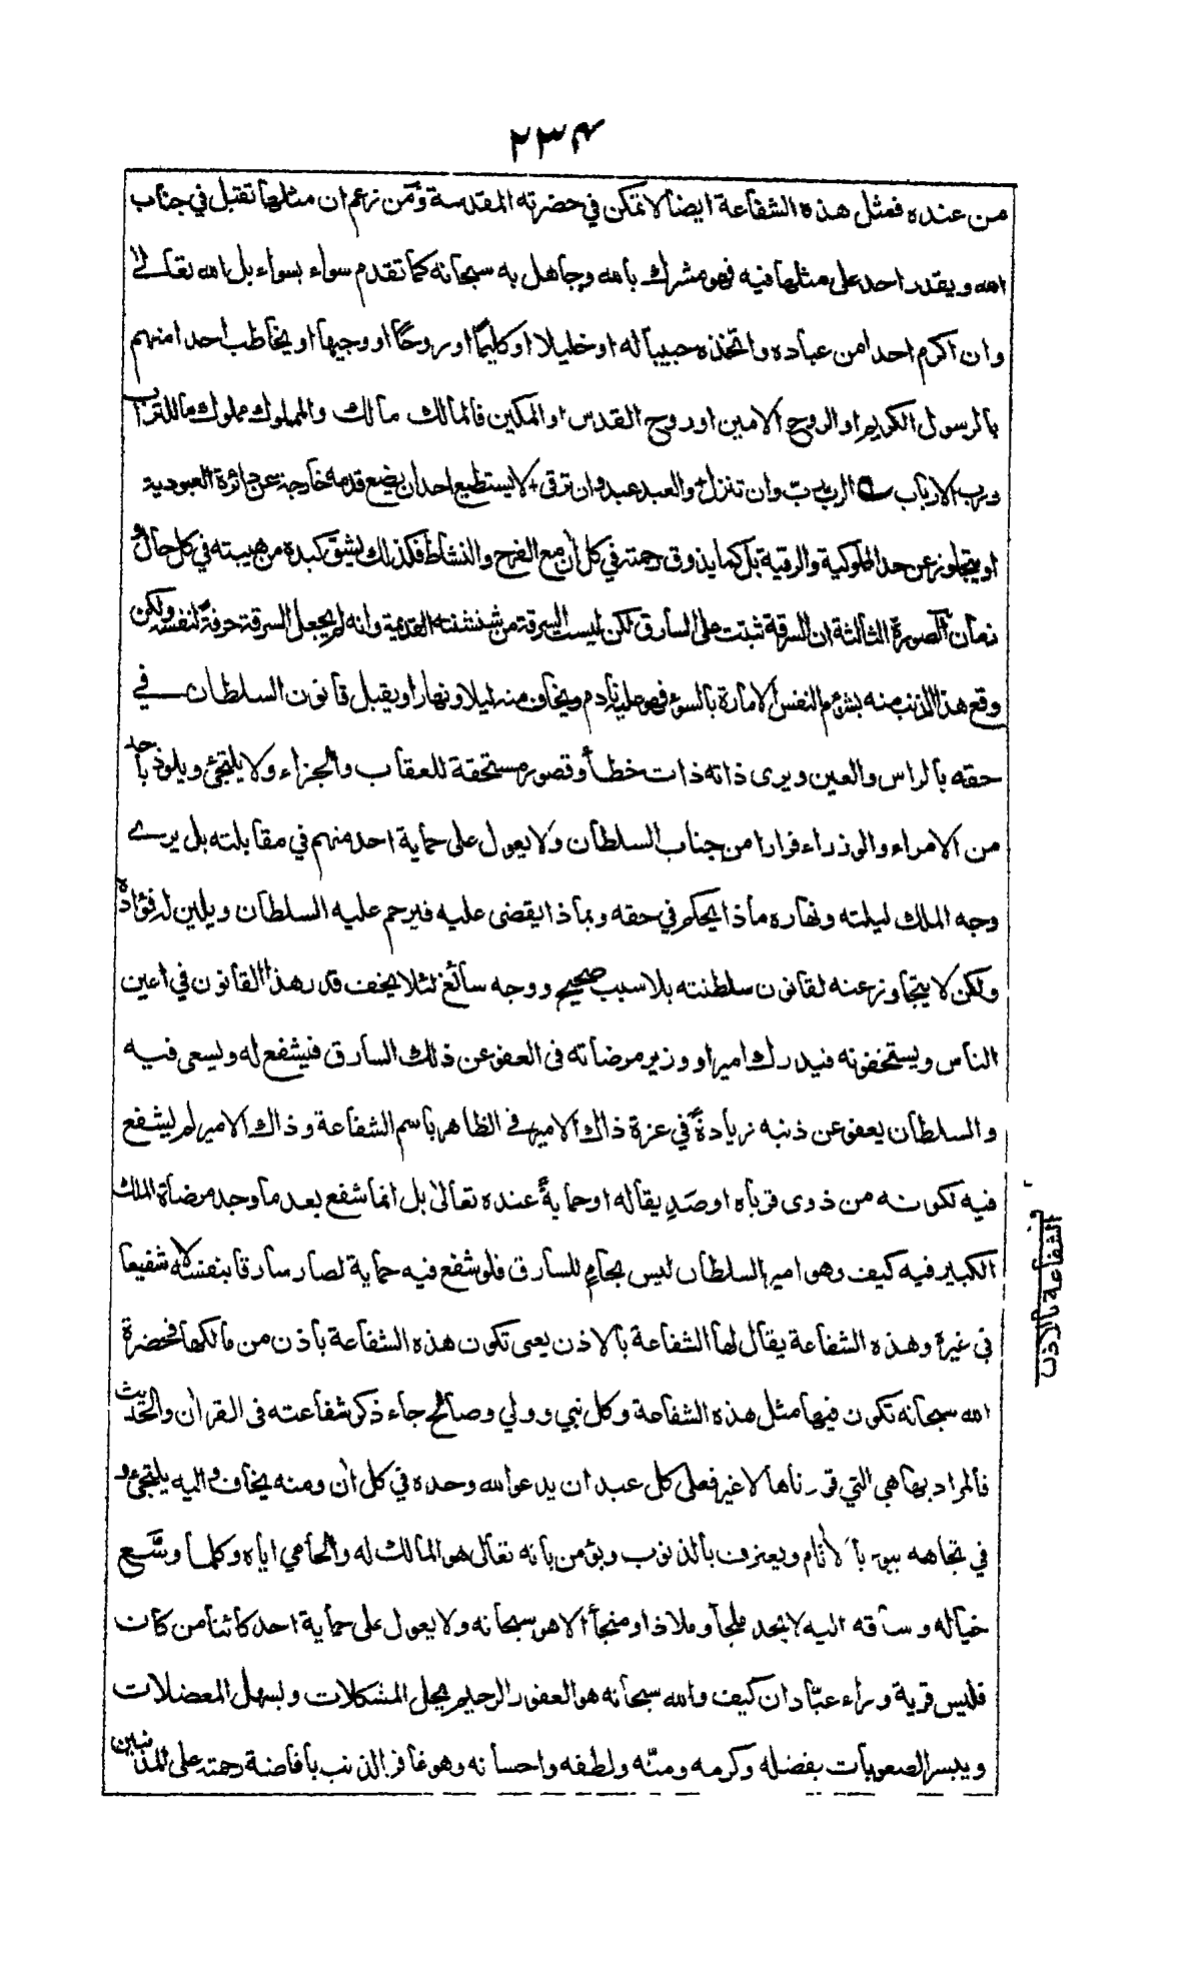 ٢٣٤
من عنده فمثل هذه الشفاعة ايضا لا تمكن في حضرته المقدسة ومن زعم ان مثلها تقبل في جناب
الله ويقدر احد على مثلها فيه فهو مشرك بالله وجاهل به سبحانه كما تقدم سواء بسواء بل الله تعالى
وان اكرم احدا من عباده واتخذه حبيبا له او خليلا او كليما او روحا او وجيها او يخاطب احدا منهم
بالرسول الكريم او الروح الامين او روح القدس او المكين فالمالك مالك والمملوك مملوك ما للتراب
ورب الارباب الرب رب وان تنزل والعبد عبد وان ترقى لا يستطيع احد ان يضع قدمه خارجة عن دائرة العبودية
او يتجاوز عن حد المملوكية والرقية بل كما يذوق رحمته في كل ان مع الفرح والنشاط فكذلك يشق كبده من هيبته في كل حال و
زمان الصورة الثالثة ان السرقة ثبتت على السارق لكن ليست السرقة من شنشنته القديمة وانه لم يجعل السرقة حرفة لنفسه ولكن
وقع هذا الذنب منه بشؤم النفس الامارة بالسوء فهو عليه نادم ويخاف منه ليلا ونهارا ويقبل قانون السلطان في
حقه بالراس والعين ويرى ذاته ذات خطأ وقصور مستحقة للعقاب والجزاء ولا يلتجئ ويلوذ باحد
من الامراء والوزراء فرارا من جناب السلطان ولا يعول على حماية احد منهم في مقابلته بل يرى
وجه الملك ليلته ونهاره ماذا يحكم في حقه وبماذا يقضى عليه فيرحم عليه السلطان ويلين له فؤاده
ولكن لا يتجاوز عنه لقانون سلطنته بلا سبب صحيح ووجه سائغ لئلا يخف قدر هذا القانون في اعين
الناس ويستخفونه فيدرك امير او وزير مرضاته فى العفو عن ذلك السارق فيشفع له ويسعى فيه
والسلطان يعفو عن ذنبه زيادة في عزة ذاك الامير في الظاهر باسم الشفاعة وذاك الامير لم يشفع
فيه لكونه من ذوى قرباه او صديقا له او حماية عنده تعالى بل انما شفع بعد ما وجد مرضاة الملك
الكبير فيه كيف وهو امير السلطان ليس بحام للسارق فلو شفع فيه حماية لصار سارقا بنفسه لا شفيعا
في غيره وهذه الشفاعة يقال لها الشفاعة بالاذن يعني تكون هذه الشفاعة باذن من مالكها فحضرة
الله سبحانه تكون فيها مثل هذه الشفاعة وكل نبي وولي وصالح جاء ذكر شفاعته فى القران والحديث
فالمراد بها هي التي قررناها لا غير فعلى كل عبد ان يدعو الله وحده في كل ان ومنه يخاف واليه يلتجئ و
في تجاهه يبوء بالاثام ويعترف بالذنوب ويؤمن بانه تعالى هو المالك له والحامي اياه وكلما وسع
خياله وساقه اليه لا يجد ملجأ وملاذا ومنجأ الا هو سبحانه ولا يعول على حماية احد كائنا من كان
فليس قرية وراء عبّادان كيف والله سبحانه هو الغفور الرحيم يحل المشكلات ويسهل المعضلات
وييسر الصعوبات بفضله وكرمه ومنّه ولطفه واحسانه وهو غافر الذنب بافاضة رحمته على المذنبين
الشفاعة بالاذن